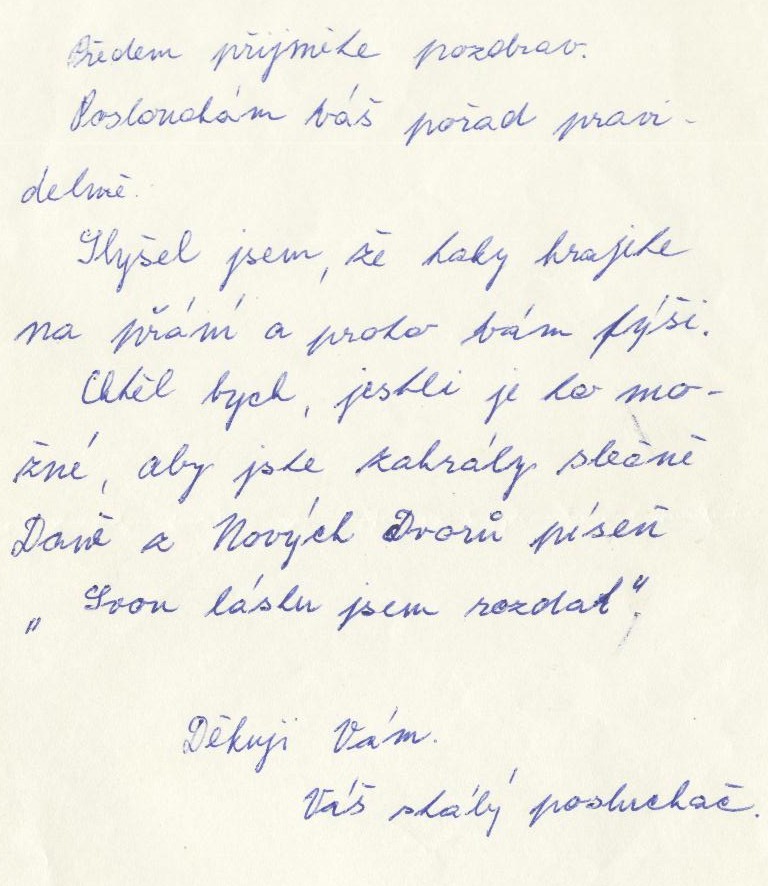 Předem přijměte pozdrav.
Poslouchám váš pořad pravi-
delně.
Slyšel jsem, že taky hrajete
na přání a proto vám pýši.
Chtěl bych, jestli je to mo-
žné, aby jste zahrály slečně
Daně z Nových Dvorů píseň
„Svou lásku jsem rozdal“.
Děkuji Vám.
Váš stálý posluchač.